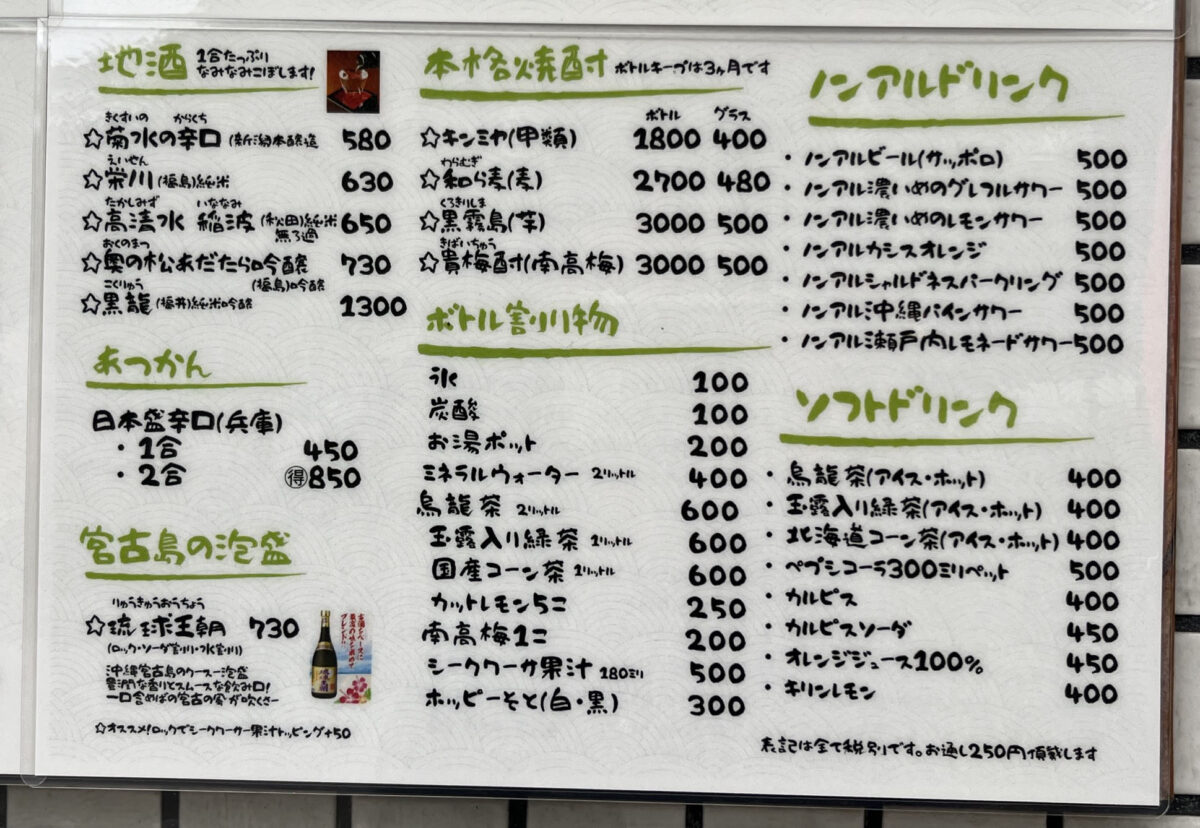 地酒 1合たっぷり
なみなみこぼします!
きくすいの からくち
☆菊水の辛口 (新潟)本醸造 580
えいせん
☆栄川 (福島)純米 630
たかしみず いななみ
☆高清水 稲波 (秋田)純米 650
無ろ過
おくのまつ
☆奥の松あだたら吟醸 730
(福島)吟醸
こくりゅう
☆黒龍 (福井)純米吟醸 1300
あつかん
日本盛辛口(兵庫)
・1合 450
・2合 得850
宮古島の泡盛
りゅうきゅうおうちょう
☆琉球王朝 730
(ロック・ソーダ割り・水割り)
沖縄宮古島のクース一泡盛
豊潤な香りとスムースな飲み口!
一口含めばの宮古の風が吹くさー
☆オススメ!ロックでシークワーサー果汁トッピング+50
本格焼酎 ボトルキープは3ヶ月です
ボトル グラス
☆キンミヤ(甲類) 1800 400
わらむぎ
☆和ら麦(麦) 2700 480
くろきりしま
☆黒霧島(芋) 3000 500
きばいちゅう
☆貴梅酎(南高梅) 3000 500
ボトル割り物
氷 100
炭酸 100
お湯ポット 200
ミネラルウォーター 2リットル 400
烏龍茶 2リットル 600
玉露入り緑茶 2リットル 600
国産コーン茶 2リットル 600
カットレモン5こ 250
南高梅1こ 200
シークワーサ果汁 180ミリ 500
ホッピーそと(白・黒) 300
ノンアルドリンク
・ノンアルビール(サッポロ) 500
・ノンアル濃いめのグレフルサワー 500
・ノンアル濃いめのレモンサワー 500
・ノンアルカシスオレンジ 500
・ノンアルシャルドネスパークリング 500
・ノンアル沖縄パインサワー 500
・ノンアル瀬戸内レモネードサワー 500
ソフトドリンク
・烏龍茶(アイス・ホット) 400
・玉露入り緑茶(アイス・ホット) 400
・北海道コーン茶(アイス・ホット) 400
・ペプシコーラ300ミリペット 500
・カルピス 400
・カルピスソーダ 450
・オレンジジュース100% 450
・キリンレモン 400
表記は全て税別です。お通し250円頂戴します